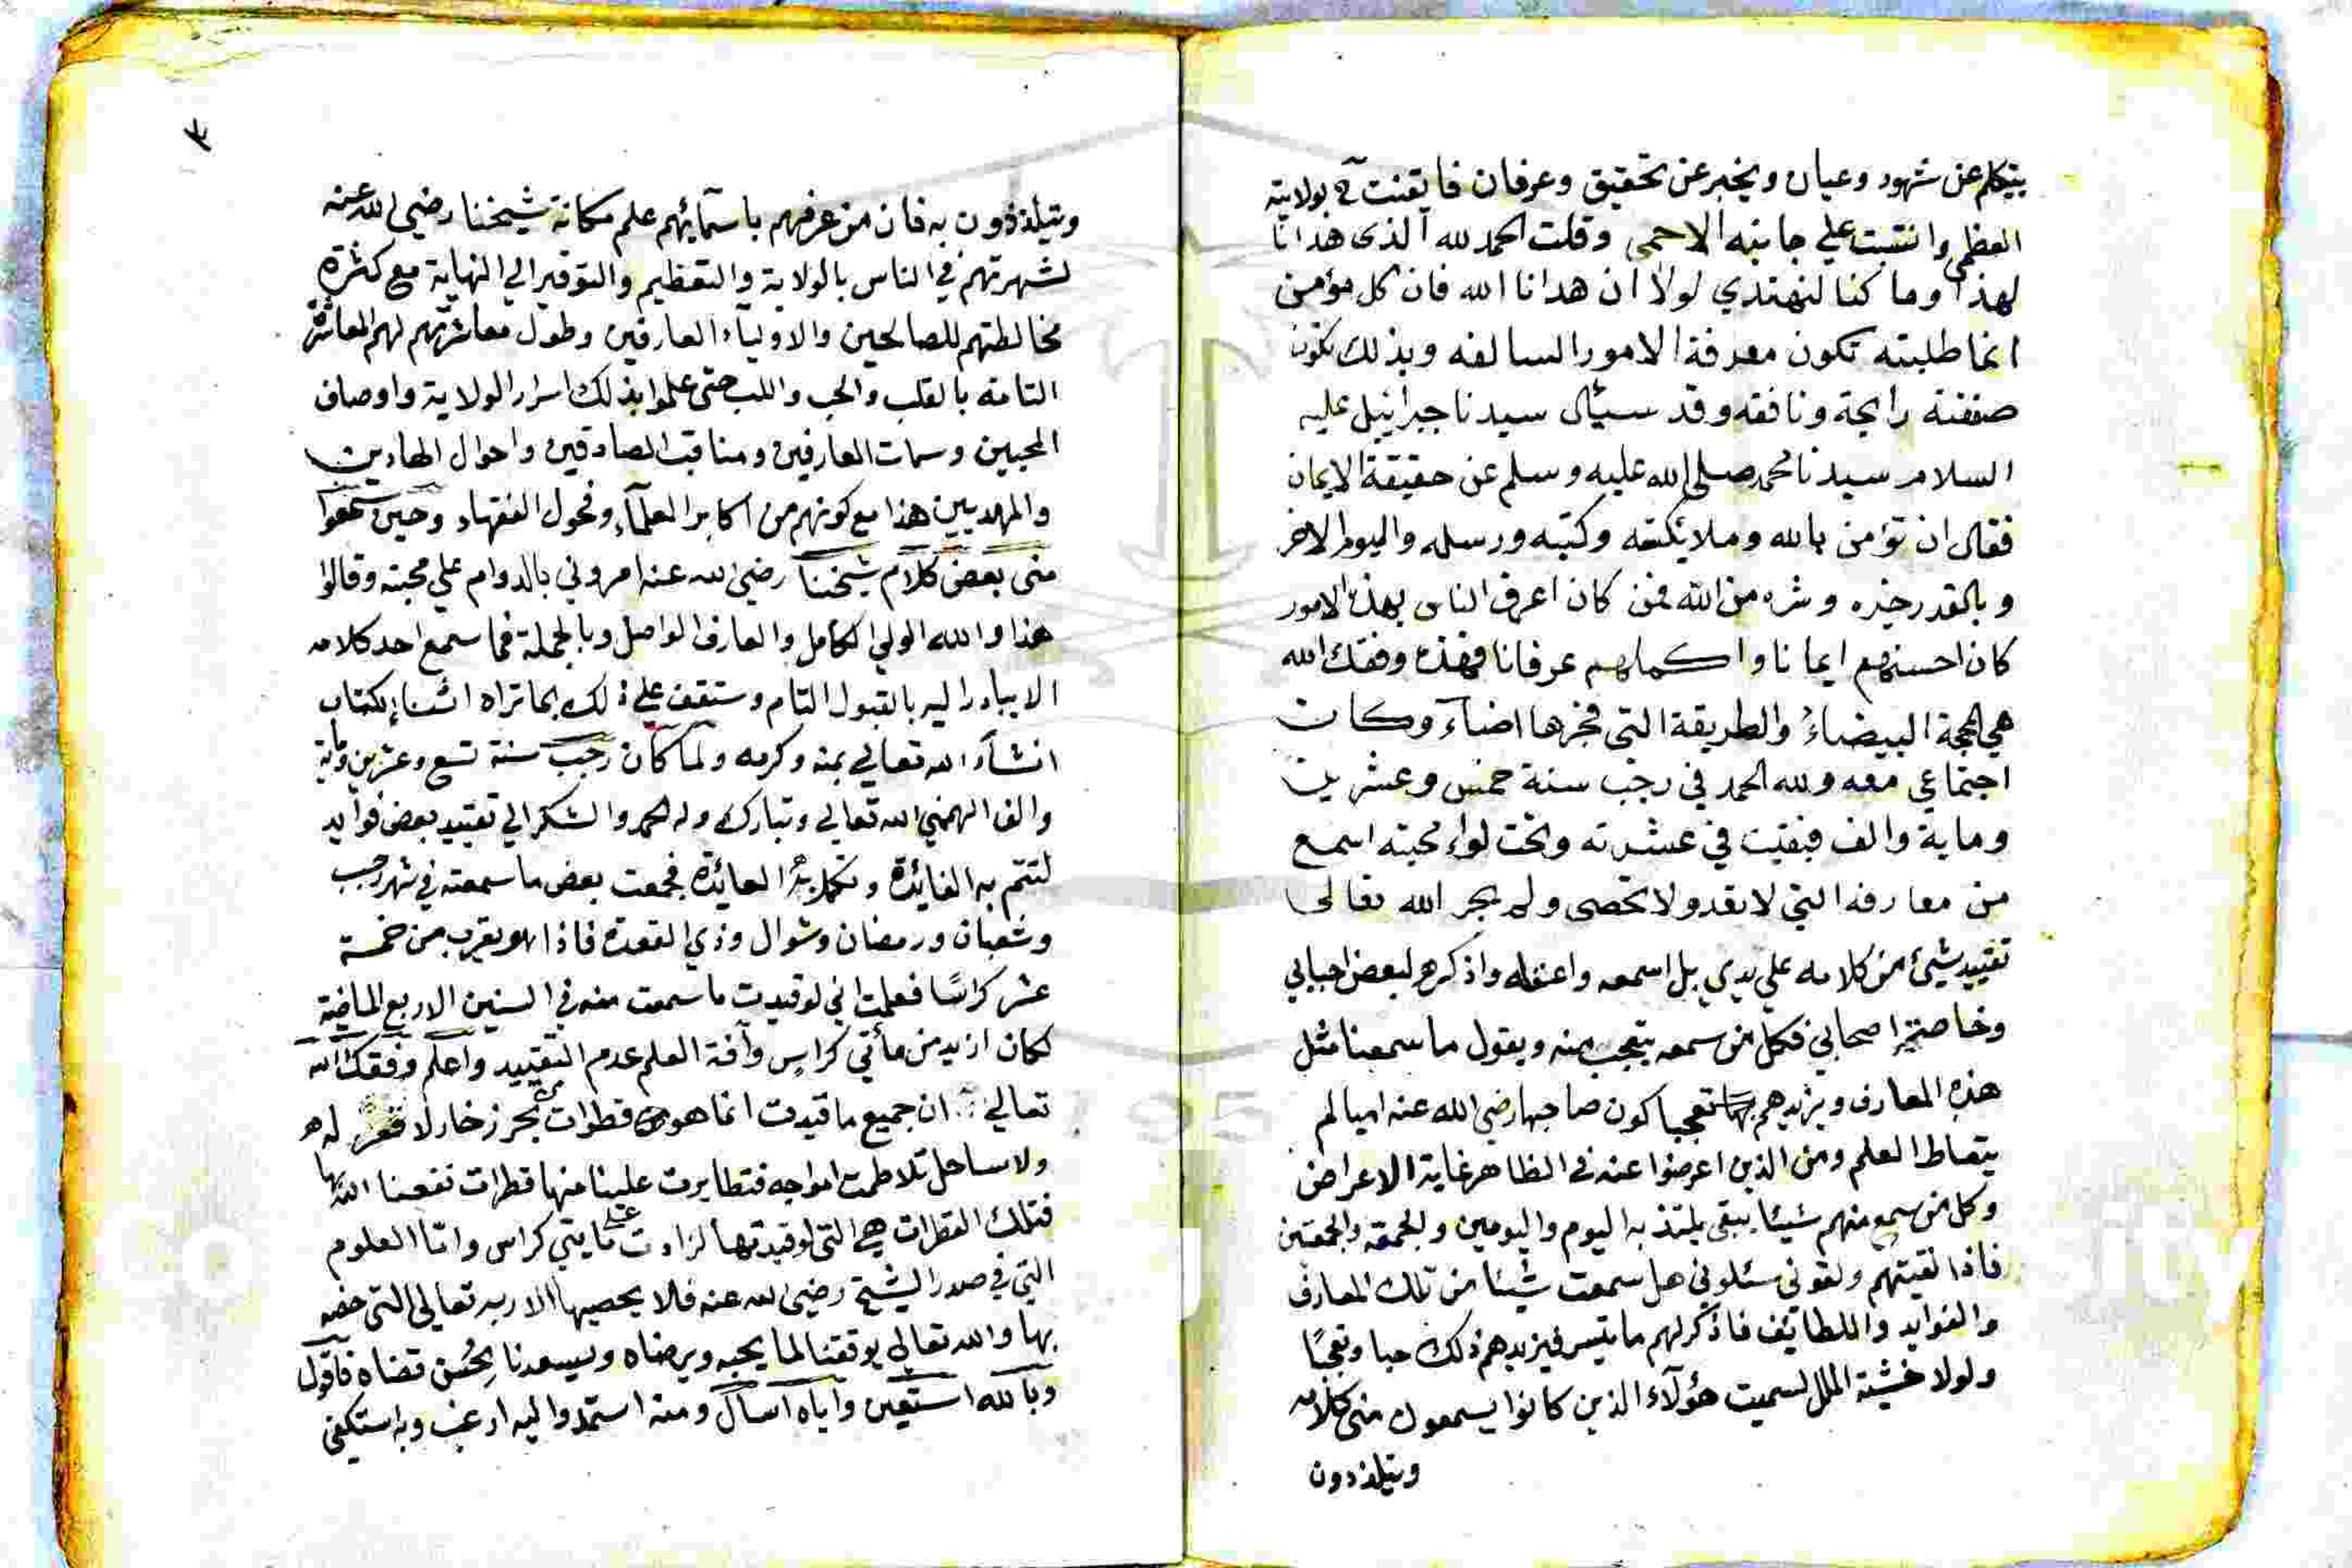 يتكلم عن شهود وعيان ويخبر عن تحقيق وعرفان فايقنت بولايته
العظمى وانتسبت على جانبه الاحمى وقلت الحمد لله الذى هدانا
لهذا وما كنا لنهتدي لولا ان هدانا الله فان كل مؤمن
انما طلبته تكون معرفة الامور السالفه وبذلك تكون
صفقته رابحة ونافقه وقد سيئال سيدنا جبرائيل عليه
السلام سيدنا محمد صلى الله عليه وسلم عن حقيقة الايمان
فقال ان تؤمن بالله وملايكته وكتبه ورسله واليوم الاخر
وبالقدر خيره وشره من الله فمن كان اعرف الناس بهذه الامور
كان احسنهم ايمانا واكملهم عرفانا فهذه وفقك الله
هي المحجة البيضاءُ والطريقة التي فجرها اضآء وكان
اجتماعي معه ولله الحمد في رجب سنة خمس وعشرين
وماية والف فبقيت في عشرته وتحت لواء محبته اسمع
من معارفه التي لا تعد ولا تحصى ولم يجر الله تعالى
تقييد شيئ من كلامه على يدي بل اسمعه واعقله واذكره لبعض احبابي
وخاصة اصحابي فكل من سمعه يتعجب منه ويقول ما سمعنا مثل
هذه المعارف ويزيدهم تعجبا كون صاحبها رضي الله عنه اميا لم
يتعاط العلم ومن الذين اعرضوا عنه في الظاهر غاية الاعراض
وكل من سمع منهم شيئا يبقى يلتذ به اليوم واليومين والجمعه والجمعتين
فاذا لقيتهم ولقوني سئلوني هل سمعت شيئا من تلك المعارف
والفوايد واللطائف فاذكر لهم ما يتيسر فيزيدهم ذلك حبا وتعجبًا
ولولا خشية الملل لسميت هؤلآء الذين كانوا يسمعون منى كلامه
ويتلذذون
٣
ويتلذذون به فان من عرفهم باسمآئهم علم مكانة شيخنا رضي الله عنه
لشهرتهم في الناس بالولاية والتعظيم والتوقير الي النهاية مع كثرة
مخالطتهم للصالحين والاولياء العارفين وطول معاشرتهم لهم المعاشرة
التامه بالقلب والحب واللب حتى علموا بذلك اسرار الولاية واوصاف
المحبين وسمات العارفين ومناقب الصادقين واحوال الهادين
والمهديين هذا مع كونهم من اكابر العلمآء وفحول الفقهاء وحين سمعوا
منى بعض كلام شيخنا رضي الله عنه امروني بالدوام علي محبته وقالوا
هذا والله الولي الكامل والعارف الواصل وبالجملة فما سمع احد كلامه
الا يبادر اليه بالقبول التام وستقف علي ذلك بما تراه اثناء الكتاب
انشآء الله تعالي بمنه وكرمه ولما كان رجب سنة تسع وعشرين وماية
والف الهمني الله تعالي وتبارك وله الحمد والشكر الي تقييد بعض فوآيد
لتتم به الفائدة وتكمل به العائدة فجمعت بعض ما سمعته في شهر رجب
وشعبان ورمضان وشوال وذي القعدة فاذا هو يقرب من خمسة
عشر كراسًا فعلمت اني لو قيدت ما سمعت منه في السنين الاربع الماضية
لكان ازيد من مأتي كراس وآفة العلم عدم التقييد واعلم وفقك الله
تعالي ان جميع ما قيدت انما هو قطرات من بحر زخار لا قعر له
ولا ساحل تلاطمت امواجه فتطايرت علينا منها قطرات نفعنا الله بها
فتلك القطرات هي التي لو قيدتها لزادت على مايتي كراس واما العلوم
التي في صدر الشيخ رضي الله عنه فلا يحصيها الا ربه تعالي التى خصه
بها والله تعالي يوفقنا لما يحبه ويرضاه ويسعدنا بحُسن قضاه فاقول
وبالله استعين واياه اسأل ومنه استمد واليه ارغب وبه استكفي